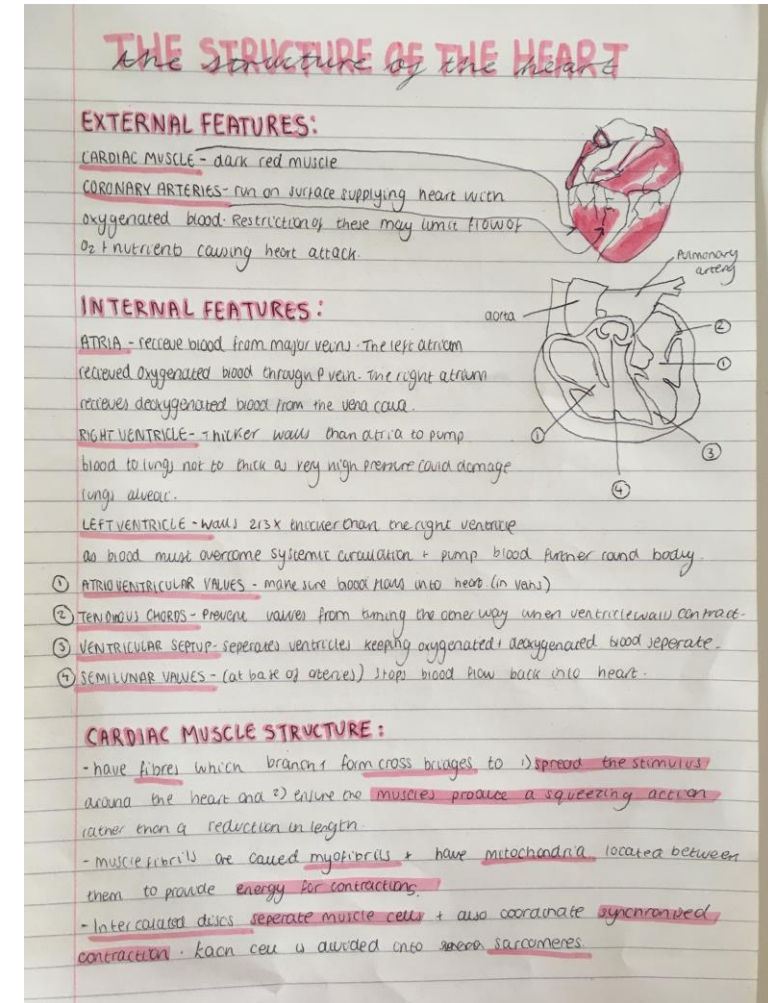 THE STRUCTURE OF THE HEART
the structure of the heart
EXTERNAL FEATURES:
CARDIAC MUSCLE - dark red muscle
CORONARY ARTERIES - run on surface supplying heart with
oxygenated blood. Restriction of these may limit flow of
O2 + nutrients causing heart attack.
Pulmonary
artery
INTERNAL FEATURES:
aorta
②
ATRIA - recieve blood from major veins. The left atrium
①
recieved oxygenated blood through P vein. The right atrium
recieves deoxygenated blood from the vena cava.
RIGHT VENTRICLE - Thicker walls than atria to pump
①
③
blood to lungs not to thick as very high pressure could damage
④
lungs alveoli.
LEFT VENTRICLE - walls 2/3x thicker than the right ventricle
as blood must overcome systemic circulation + pump blood further round body.
① ATRIOVENTRICULAR VALVES - make sure blood flows into heart (in vans)
② TENDINOUS CHORDS - Prevent valves from turning the other way when ventricle wall contract.
③ VENTRICULAR SEPTUP - seperates ventricles keeping oxygenated + deoxygenated blood seperate.
④ SEMILUNAR VALVES - (at base of ateries) stops blood flow back into heart.
CARDIAC MUSCLE STRUCTURE:
- have fibres which branch + form cross bridges to 1) spread the stimulus
around the heart and 2) ensure the muscles produce a squeezing action
rather than a reduction in length.
- muscle fibrils are called myofibrils + have mitochondria located between
them to provide energy for contractions.
- Intercalated discs seperate muscle cells + also coordinate synchronised
contraction. Each cell is divided into sarcomeres.